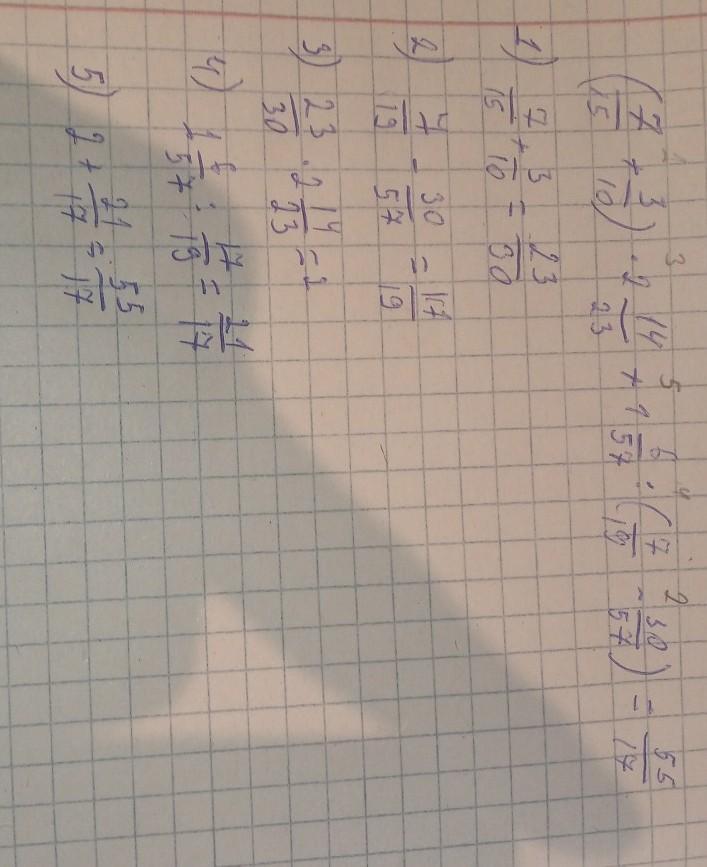 1 3 5 4 2
(7/15 + 3/10) · 2 14/23 + 1 6/57 : (7/19 - 30/57) = 55/17
1) 7/15 + 3/10 = 23/30
2) 7/19 - 30/57 = 17/19
3) 23/30 · 2 14/23 = 2
4) 1 6/57 : 17/19 = 21/17
5) 2 + 21/17 = 55/17